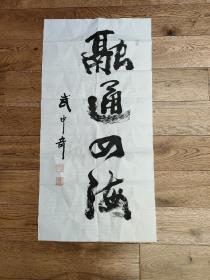 融通四海
武中奇